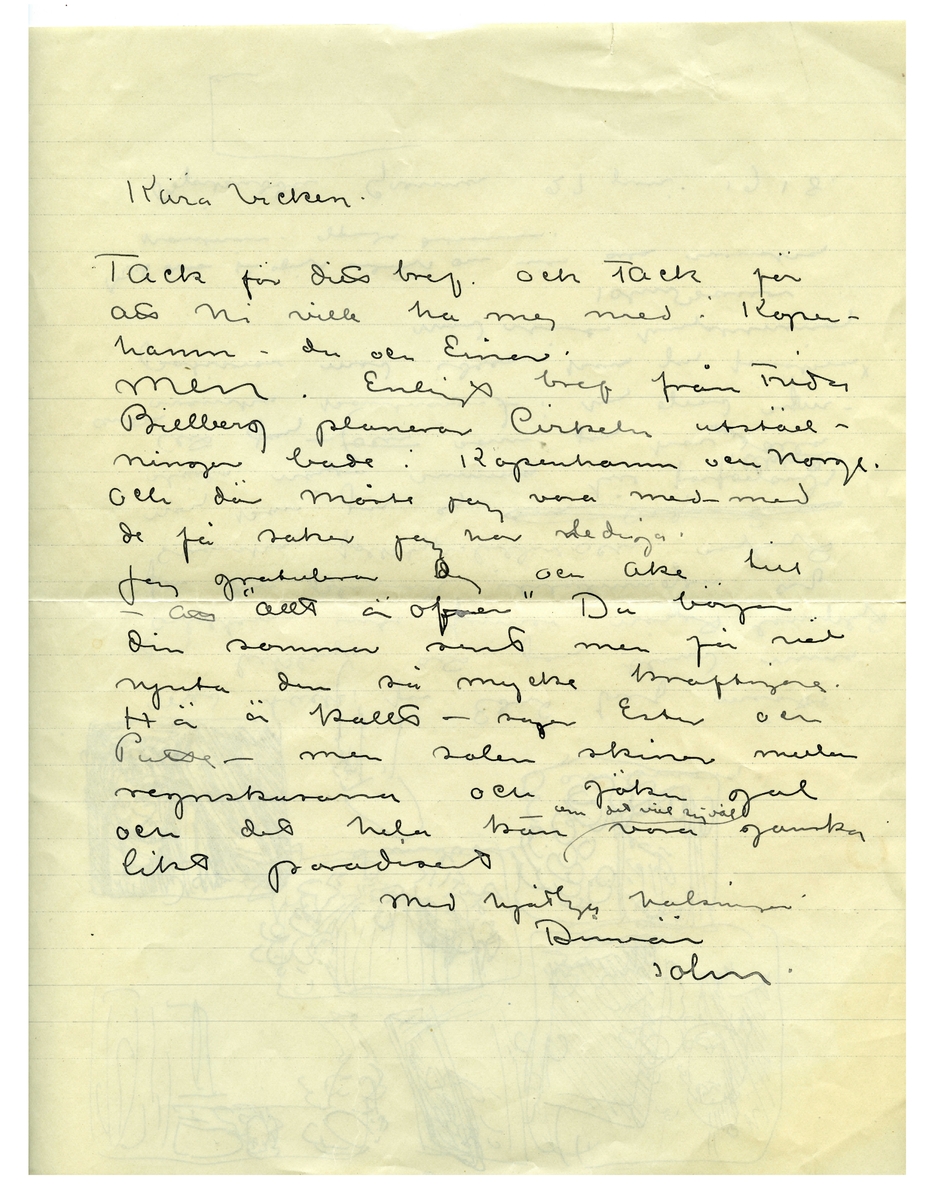 Kära Vicken.
Tack för ditt bref. och Tack för
att Ni ville ha mej med i Köpen-
hamn – du och Einar.
Men. Enligt bref från Frida
planerar Cirkeln utställ-
ningar både i Köpenhamn och Norge.
och där måste jag vara med – med
de få saker jag har lediga.
Jag gratulerar Dig och Åke till
– att "allt är öfver" Du börjar
din sommar sent men får väl
njuta den så mycke kraftigare.
Hä är kallt – säger Ester och
– men solen skiner mellan
regnskurarna och göken gal
och det hela kan om det vill sig väl vara ganska
likt paradiset
Med hjärtliga hälsningar
Din vän